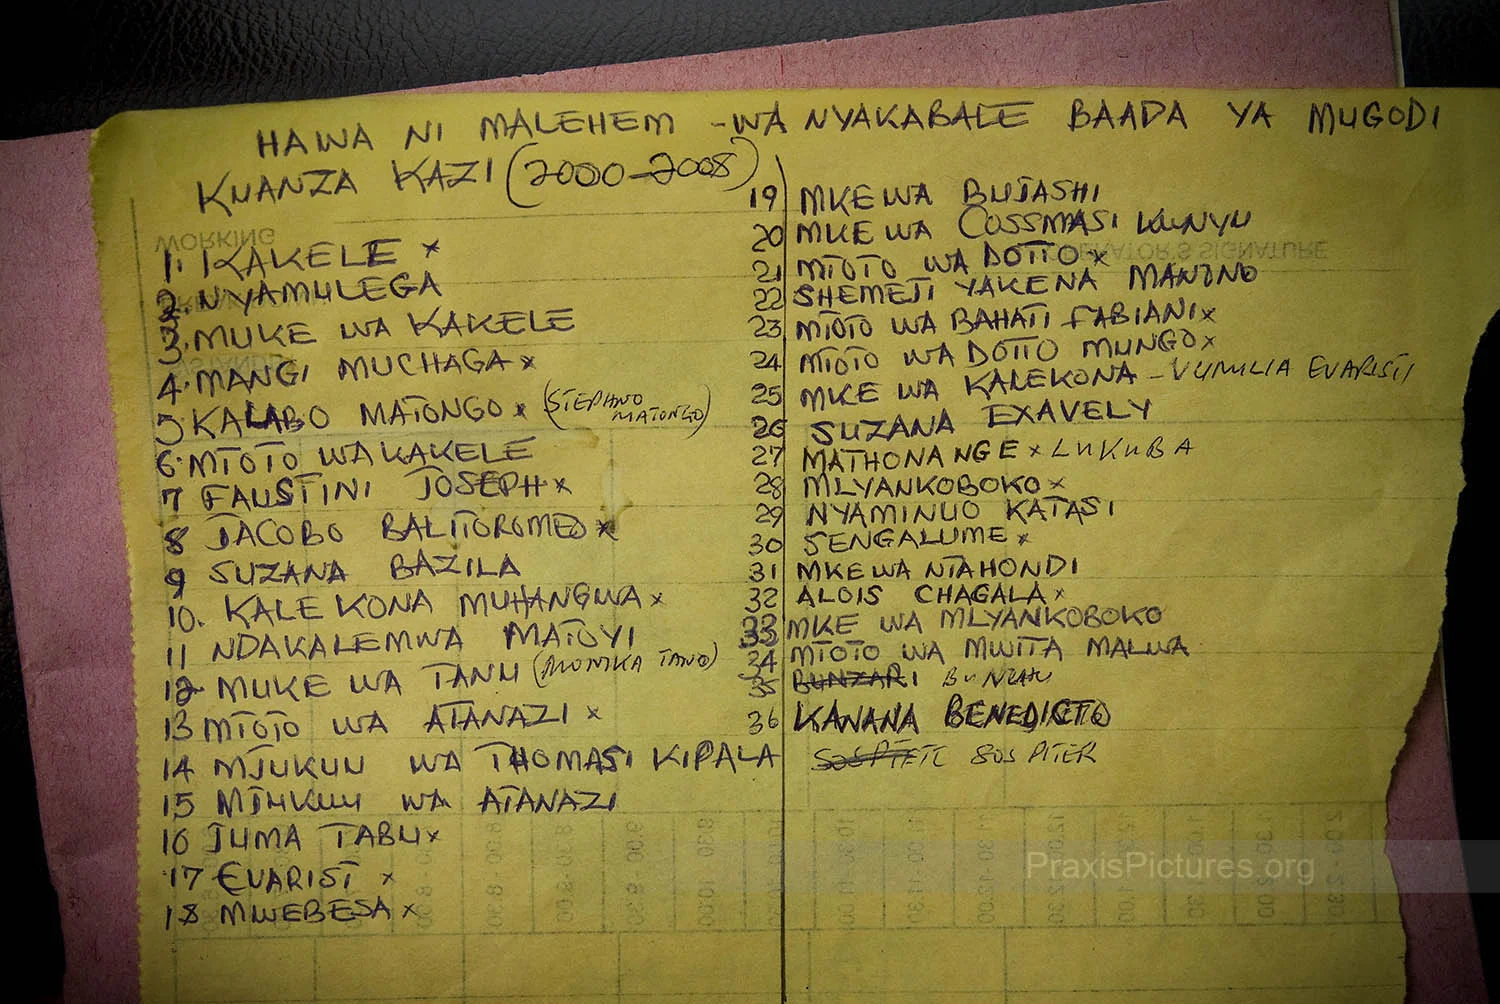 HAWA NI MALEHEM - WA NYAKABALE BAADA YA MUGODI
KUANZA KAZI (2000-2008)
WORKING
1. KAKELE x
2. NYAMULEGA
3. MUKE WA KAKELE
4. MANGI MUCHAGA x
5 KALABO MATONGO x (STEPHANO MATONGO)
6. MTOTO WA KAKELE
7 FAUSTINI JOSEPH x
8 JACOBO BALITOROMEO x
9 SUZANA BAZILA
10. KALEKONA MUHANGWA x
11 NDAKALEMWA MATOYI
12 MUKE WA TANU (MONIKA TANO)
13 MTOTO WA ATANAZI x
14 MJUKUU WA THOMASI KIPALA
15 MJUKUU WA ATANAZI
16 JUMA TABU x
17 EVARIST x
18 MWEBESA x
19 MKE WA BUTASHI
20 MKE WA COSSMASI KUNYU
OPERATOR'S SIGNATURE
21 MTOTO WA DOTTO x
22 SHEMEJI YAKENA MANONO
23 MTOTO WA BAHATI FABIANI x
24 MTOTO WA DOTTO MUNGO x
25 MKE WA KALEKONA - VUMILIA EVARISTI
26 SUZANA EXAVELY
27 MATHONANGE x LUKUBA
28 MLYANKOBOKO x
29 NYAMINUO KATASI
30 SENGALUME x
31 MKE WA NTAHONDI
32 ALOIS CHAGALA x
33 MKE WA MLYANKOBOKO
34 MTOTO WA MWITA MALWA
35 BUNZARI
36 KANANA BENEDICTO
SOSPITER
PraxisPictures.org